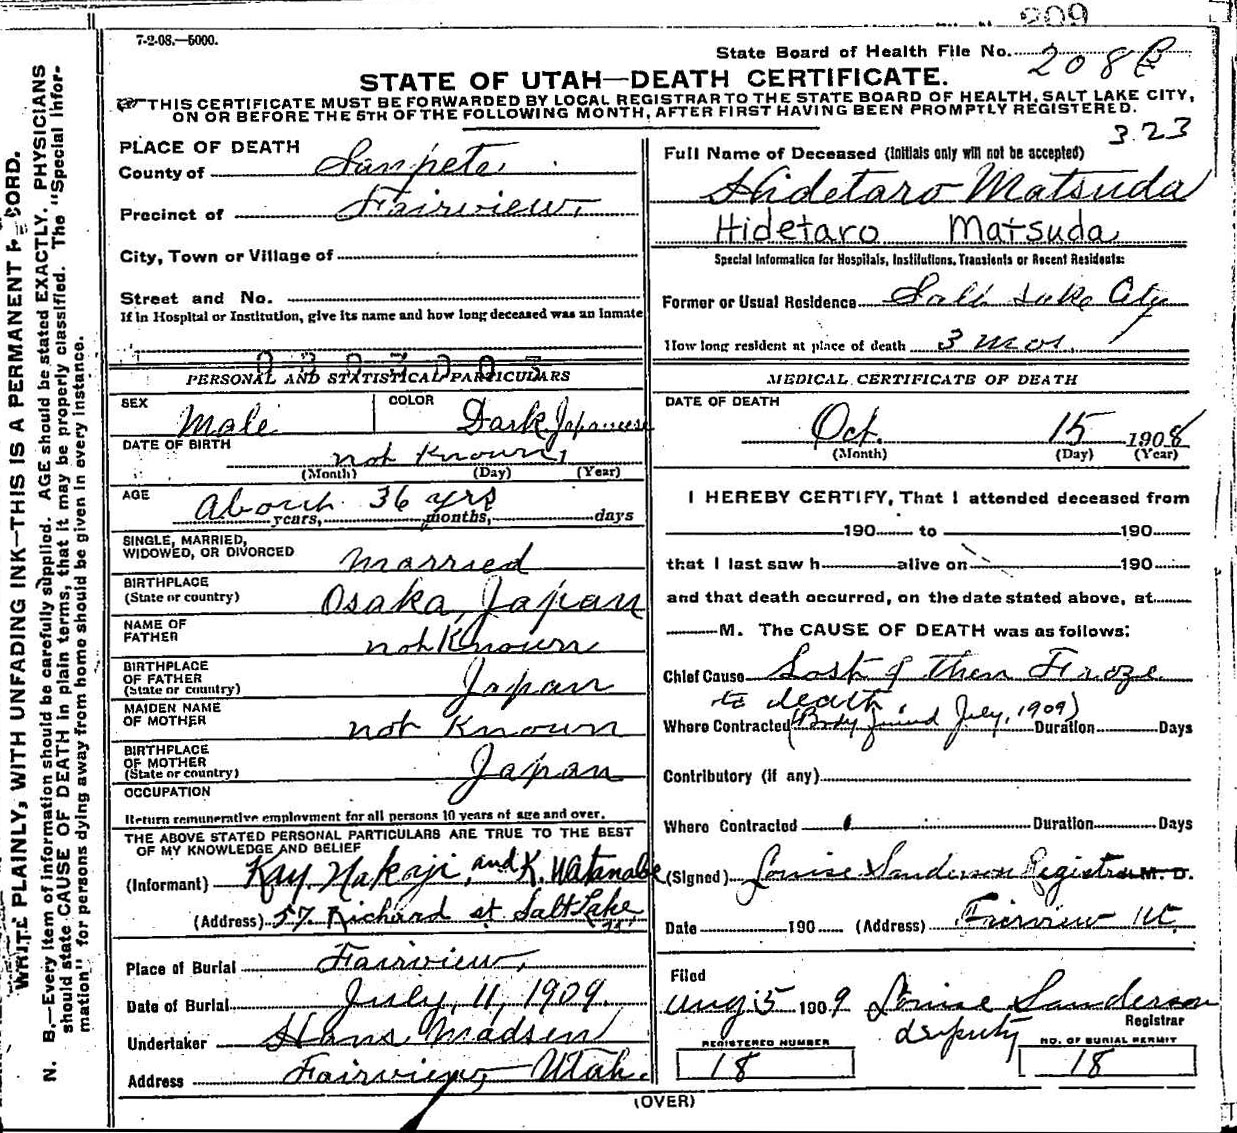 909
7-2-08.—5000.
State Board of Health File No. 208
STATE OF UTAH—DEATH CERTIFICATE.
THIS CERTIFICATE MUST BE FORWARDED BY LOCAL REGISTRAR TO THE STATE BOARD OF HEALTH, SALT LAKE CITY,
ON OR BEFORE THE 5TH OF THE FOLLOWING MONTH, AFTER FIRST HAVING BEEN PROMPTLY REGISTERED.
323
WRITE PLAINLY, WITH UNFADING INK—THIS IS A PERMANENT
N. B.—Every item of information should be carefully supplied. AGE should be stated EXACTLY. PHYSICIANS
should state CAUSE OF DEATH in plain terms, that it may be properly classified. The "Special Infor-
mation" for persons dying away from home should be given in every instance.
PLACE OF DEATH
County of Sanpete
Precinct of Fairview
City, Town or Village of
Street and No.
If in Hospital or Institution, give its name and how long deceased was an Inmate
PERSONAL AND STATISTICAL PARTICULARS
SEX Male
COLOR Dark Japanese
DATE OF BIRTH not Known
(Month) (Day) (Year)
AGE About 36 yrs
years, months, days
SINGLE, MARRIED,
WIDOWED, OR DIVORCED Married
BIRTHPLACE
(State or country) Osaka, Japan
NAME OF
FATHER not Known
BIRTHPLACE
OF FATHER
(State or country) Japan
MAIDEN NAME
OF MOTHER not Known
BIRTHPLACE
OF MOTHER
(State or country) Japan
OCCUPATION
Return remunerative employment for all persons 10 years of age and over.
THE ABOVE STATED PERSONAL PARTICULARS ARE TRUE TO THE BEST
OF MY KNOWLEDGE AND BELIEF
(Informant) Kay Nakoji, and K. Watanabe
(Address) 57. Richard st Salt Lake
Place of Burial Fairview,
Date of Burial July, 11, 1909.
Undertaker Hans Madsen
Address Fairview, Utah.
Full Name of Deceased (Initials only will not be accepted)
Hidetaro Matsuda
Hidetaro Matsuda
Special Information for Hospitals, Institutions, Transients or Recent Residents:
Former or Usual Residence Salt Lake City
How long resident at place of death 3 mos.
MEDICAL CERTIFICATE OF DEATH
DATE OF DEATH
Oct. 15 1908
(Month) (Day) (Year)
I HEREBY CERTIFY, That I attended deceased from
190 to 190
that I last saw h alive on 190
and that death occurred, on the date stated above, at
M. The CAUSE OF DEATH was as follows:
Chief Cause Lost & then Froze
to death
Where Contracted (Body found July, 1909) Duration Days
Contributory (if any)
Where Contracted Duration Days
(Signed) Louise Sanderson Registrar M. D.
Date 190 (Address) Fairview Ut
Filed
Aug 5 1909 Louise Sanderson
deputy Registrar
REGISTERED NUMBER
18
NO. OF BURIAL PERMIT
18
(OVER)